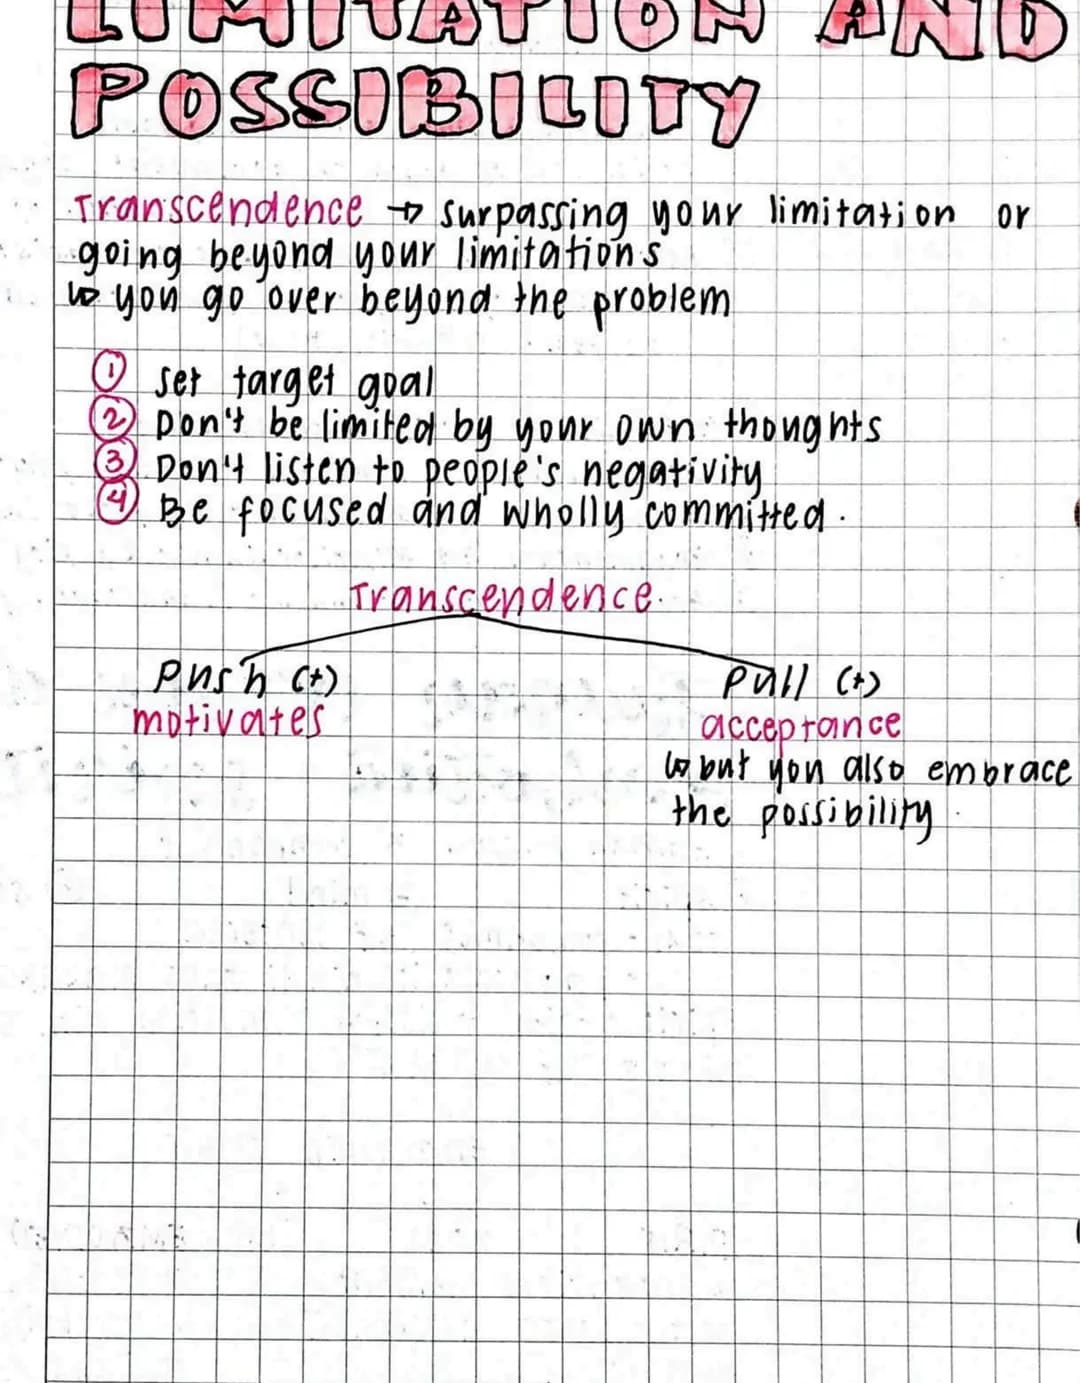 LIMITATION AND
POSSIBILITY
Transcendence → surpassing your limitation or
going beyond your limitations
↳ you go over beyond the problem
① Set target goal
② Don't be limited by your own thoughts
③ Don't listen to people's negativity
④ Be focused and wholly committed.
Transcendence.
Push (+)
motivates
Pull (+)
acceptance
↳ but you also embrace
the possibility.